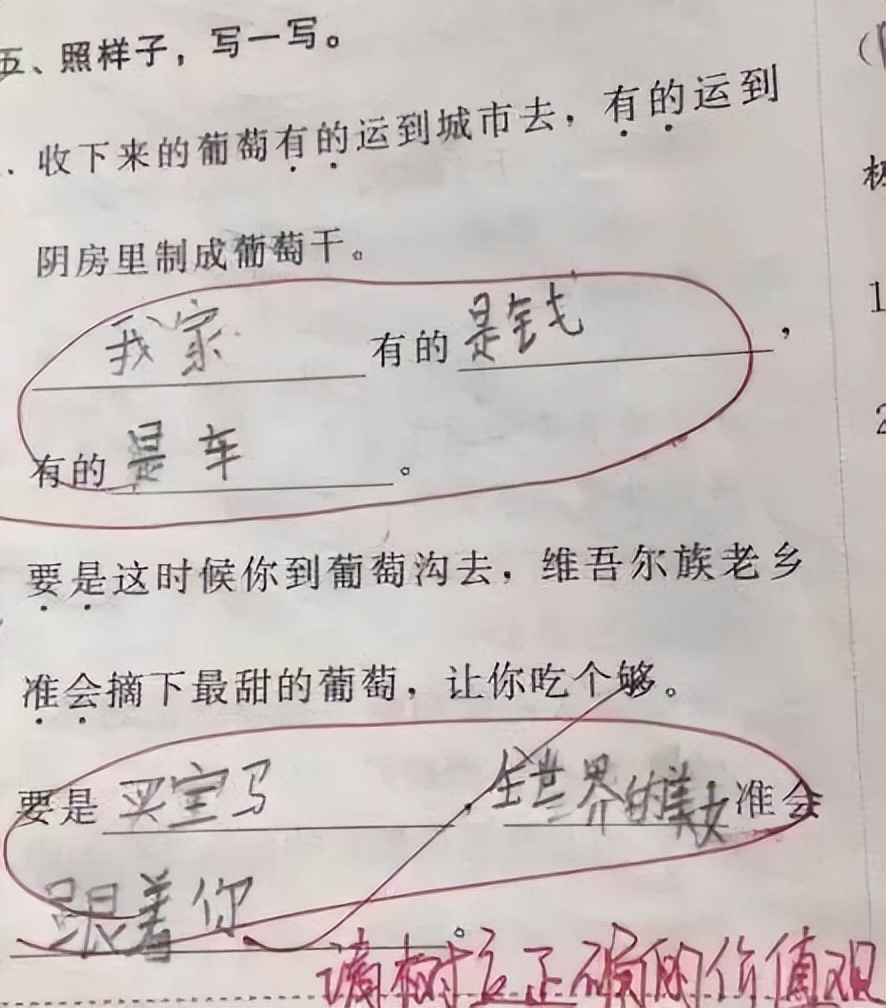 五、照样子，写一写。
. 收下来的葡萄有的运到城市去，有的运到
阴房里制成葡萄干。
我家有的是钱，
有的是车。
要是这时候你到葡萄沟去，维吾尔族老乡
准会摘下最甜的葡萄，让你吃个够。
要是买宝马，全世界的美女准会
跟着你。
请树立正确的价值观
(
1
2